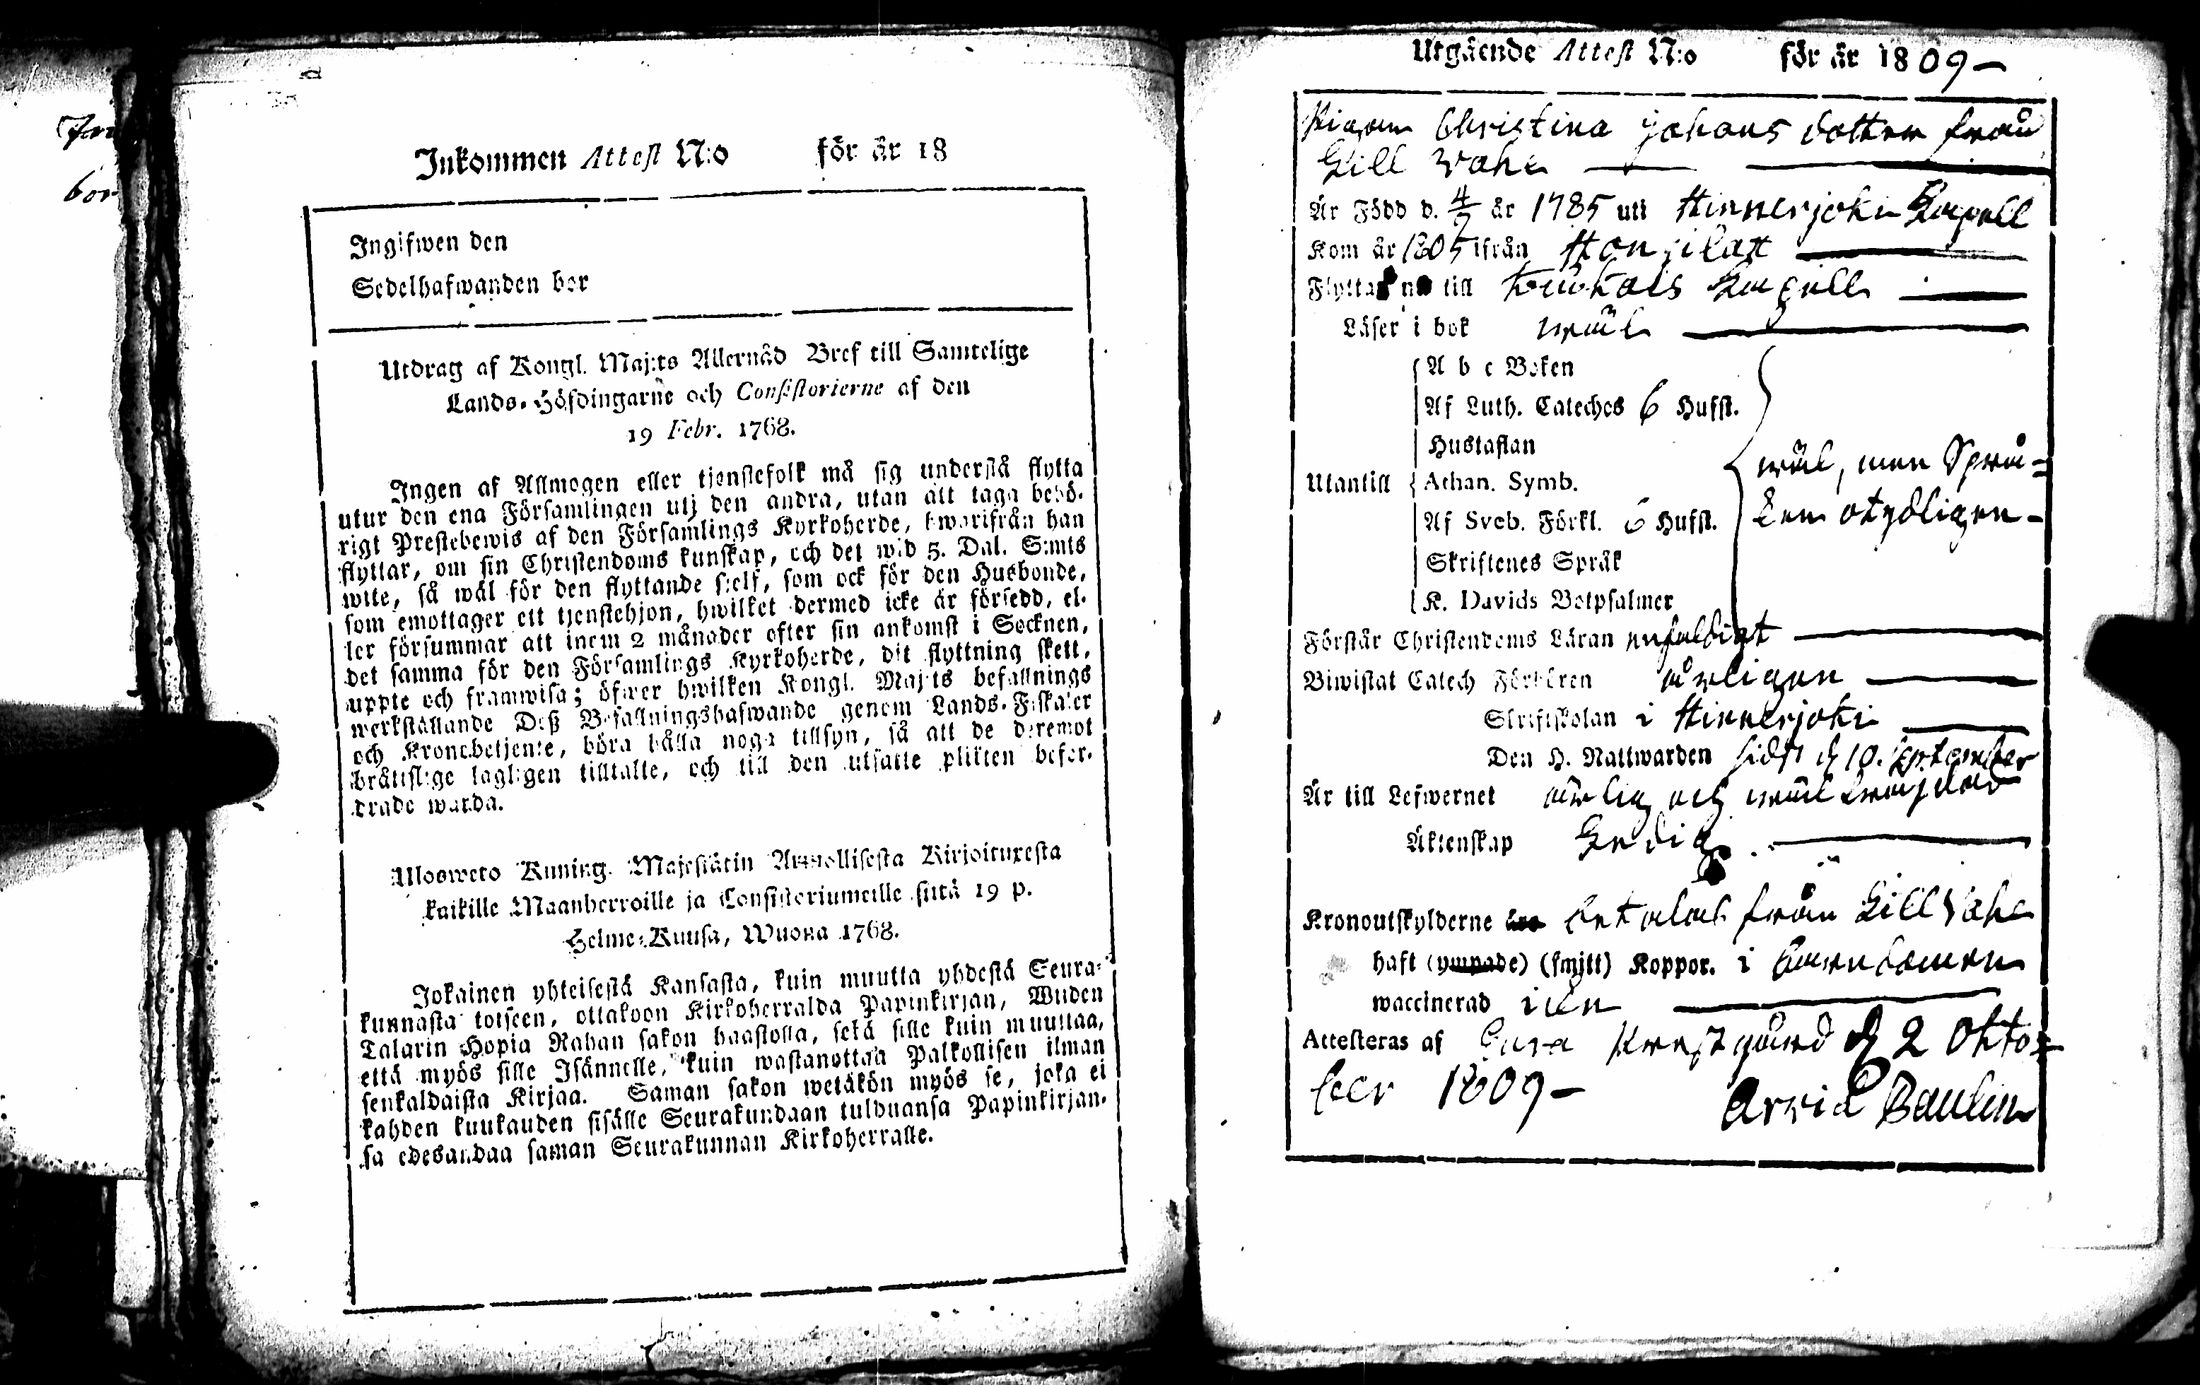 Jnkommen Attest N:o för år 18
Jngifwen den
Sedelhafwanden bor
Utdrag af Kongl. Maj:ts Allernåd Bref till Samtelige
Lands-Höfdingarne och Consistorierne af den
19 Febr. 1768.
Jngen af Allmogen eller tjenstefolk må sig understå flytta
utur den ena Församlingen utj den andra, utan att taga behö-
rigt Prestebewis af den Församlings Kyrkoherde, hwarifrån han
flyttar, om sin Christendoms kunskap, och det wid 5. Dal. S:mts
wite, så wäl för den flyttande sjelf, som ock för den Husbonde,
som emottager ett tjenstehjon, hwilket dermed icke är försedd, el-
ler försummar att inom 2 månader efter sin ankomst i Socknen,
det samma för den Församlings Kyrkoherde, dit flyttning skett,
uppte och framwisa; öfwer hwilken Kongl. Maj:ts befallnings
werkställande Deß Befallningshafwande genom Lands-Fiskaler
och Kronobetjente, böra hålla noga tillsyn, så att de deremot
bråttslige lagligen tilltalte, och till den utsatte plikten befor-
drade warda.
Ulosweto Kuning. Majestätin Armollisesta Kirjoituxesta
kaikille Maanherroille ja Consistoriumeille siitä 19 p.
Helme-Kuusa, Wuona 1768.
Jokainen yhteisestä Kansasta, kuin muutta yhdestä Seura-
kunnasta toiseen, ottakoon Kirkoherralda Papinkirjan, Wiiden
Talarin Hopia Rahan sakon haastolla, sekä sille kuin muuttaa,
että myös sille Jsännelle, kuin wastanottaa Palkollisen ilman
senkaldaista Kirjaa. Saman sakon wetäkön myös se, joka ei
kahden kuukauden sisälle Seurakundaan tulduansa Papinkirjan-
sa edesandaa saman Seurakunnan Kirkoherralle.
Utgående Attest N:o för år 1809 –
Pigan Christina Johans dotter från
Lill Vahe
Är Född d. 4/7 år 1785 uti Hinnerjoki Kapell
Kom år 1805 ifrån Hongilax
Flyttar nu till Kapell
Läser i bok wäl
A b c Boken
Af Luth. Cateches 6 Hufst.
Hustaflan
Utantill Athan. Symb. wäl, men Språ=
Af Sveb. Förkl. 6 Hufst. ken otydligen –
Skriftenes Språk
K. Davids Botpsalmer
Förstår Christendoms Läran enfaldigt
Biwistat Catech Förhören årligen
Skriftskolan i Hinnerjoki
Den H. Nattwarden sidst d 10. September
Är till Lefwernet ärlig och wäl
Äktenskap Ledig
Kronoutskylderne betalat från Lill Vahe
haft (ympade) (smitt) Koppor. i barndomen
waccinerad icke
Attesteras af Eura Prestgård d 2 Okto=
ber 1809 –
Arvid Paulin